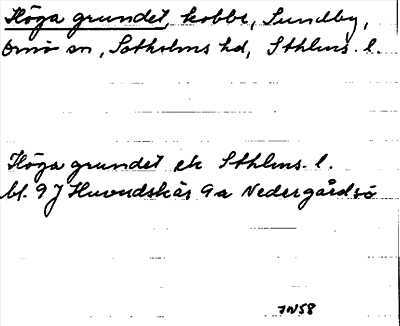 Höga grundet, kobbe, Sundby,
Ornö sn, Sotholms hd, Sthlms. l.
Höga grundet ek Sthlms. l.
bl. 9J Huvudskär 9a Nedergårdsö
JN58